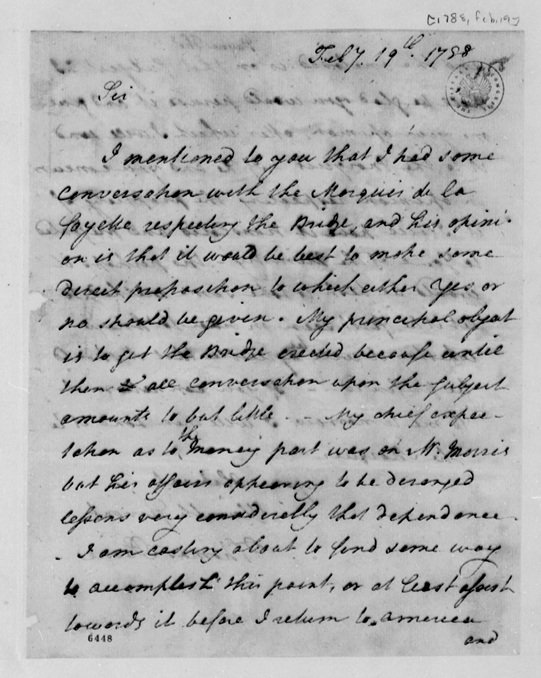 [1788, Feb. 19]
Feby. 19th. 1788
Sir
I mentioned to you that I had some
conversation with the Marquis de la
fayette respecting the Bridge, and his opini-
on is that it would be best to make some
direct proposition to which either Yes or
no should be given. My principal object
is to get the Bridge erected because until
then all conversation upon the subject
amounts to but little. – My chief expec-
tation as to the Money part was on Mr. Morris
but his affairs appearing to be deranged
lessens very considerably that dependence.
- I am casting about to find some way
to accomplish this point, or at least assist
towards it before I return to america
6448
and